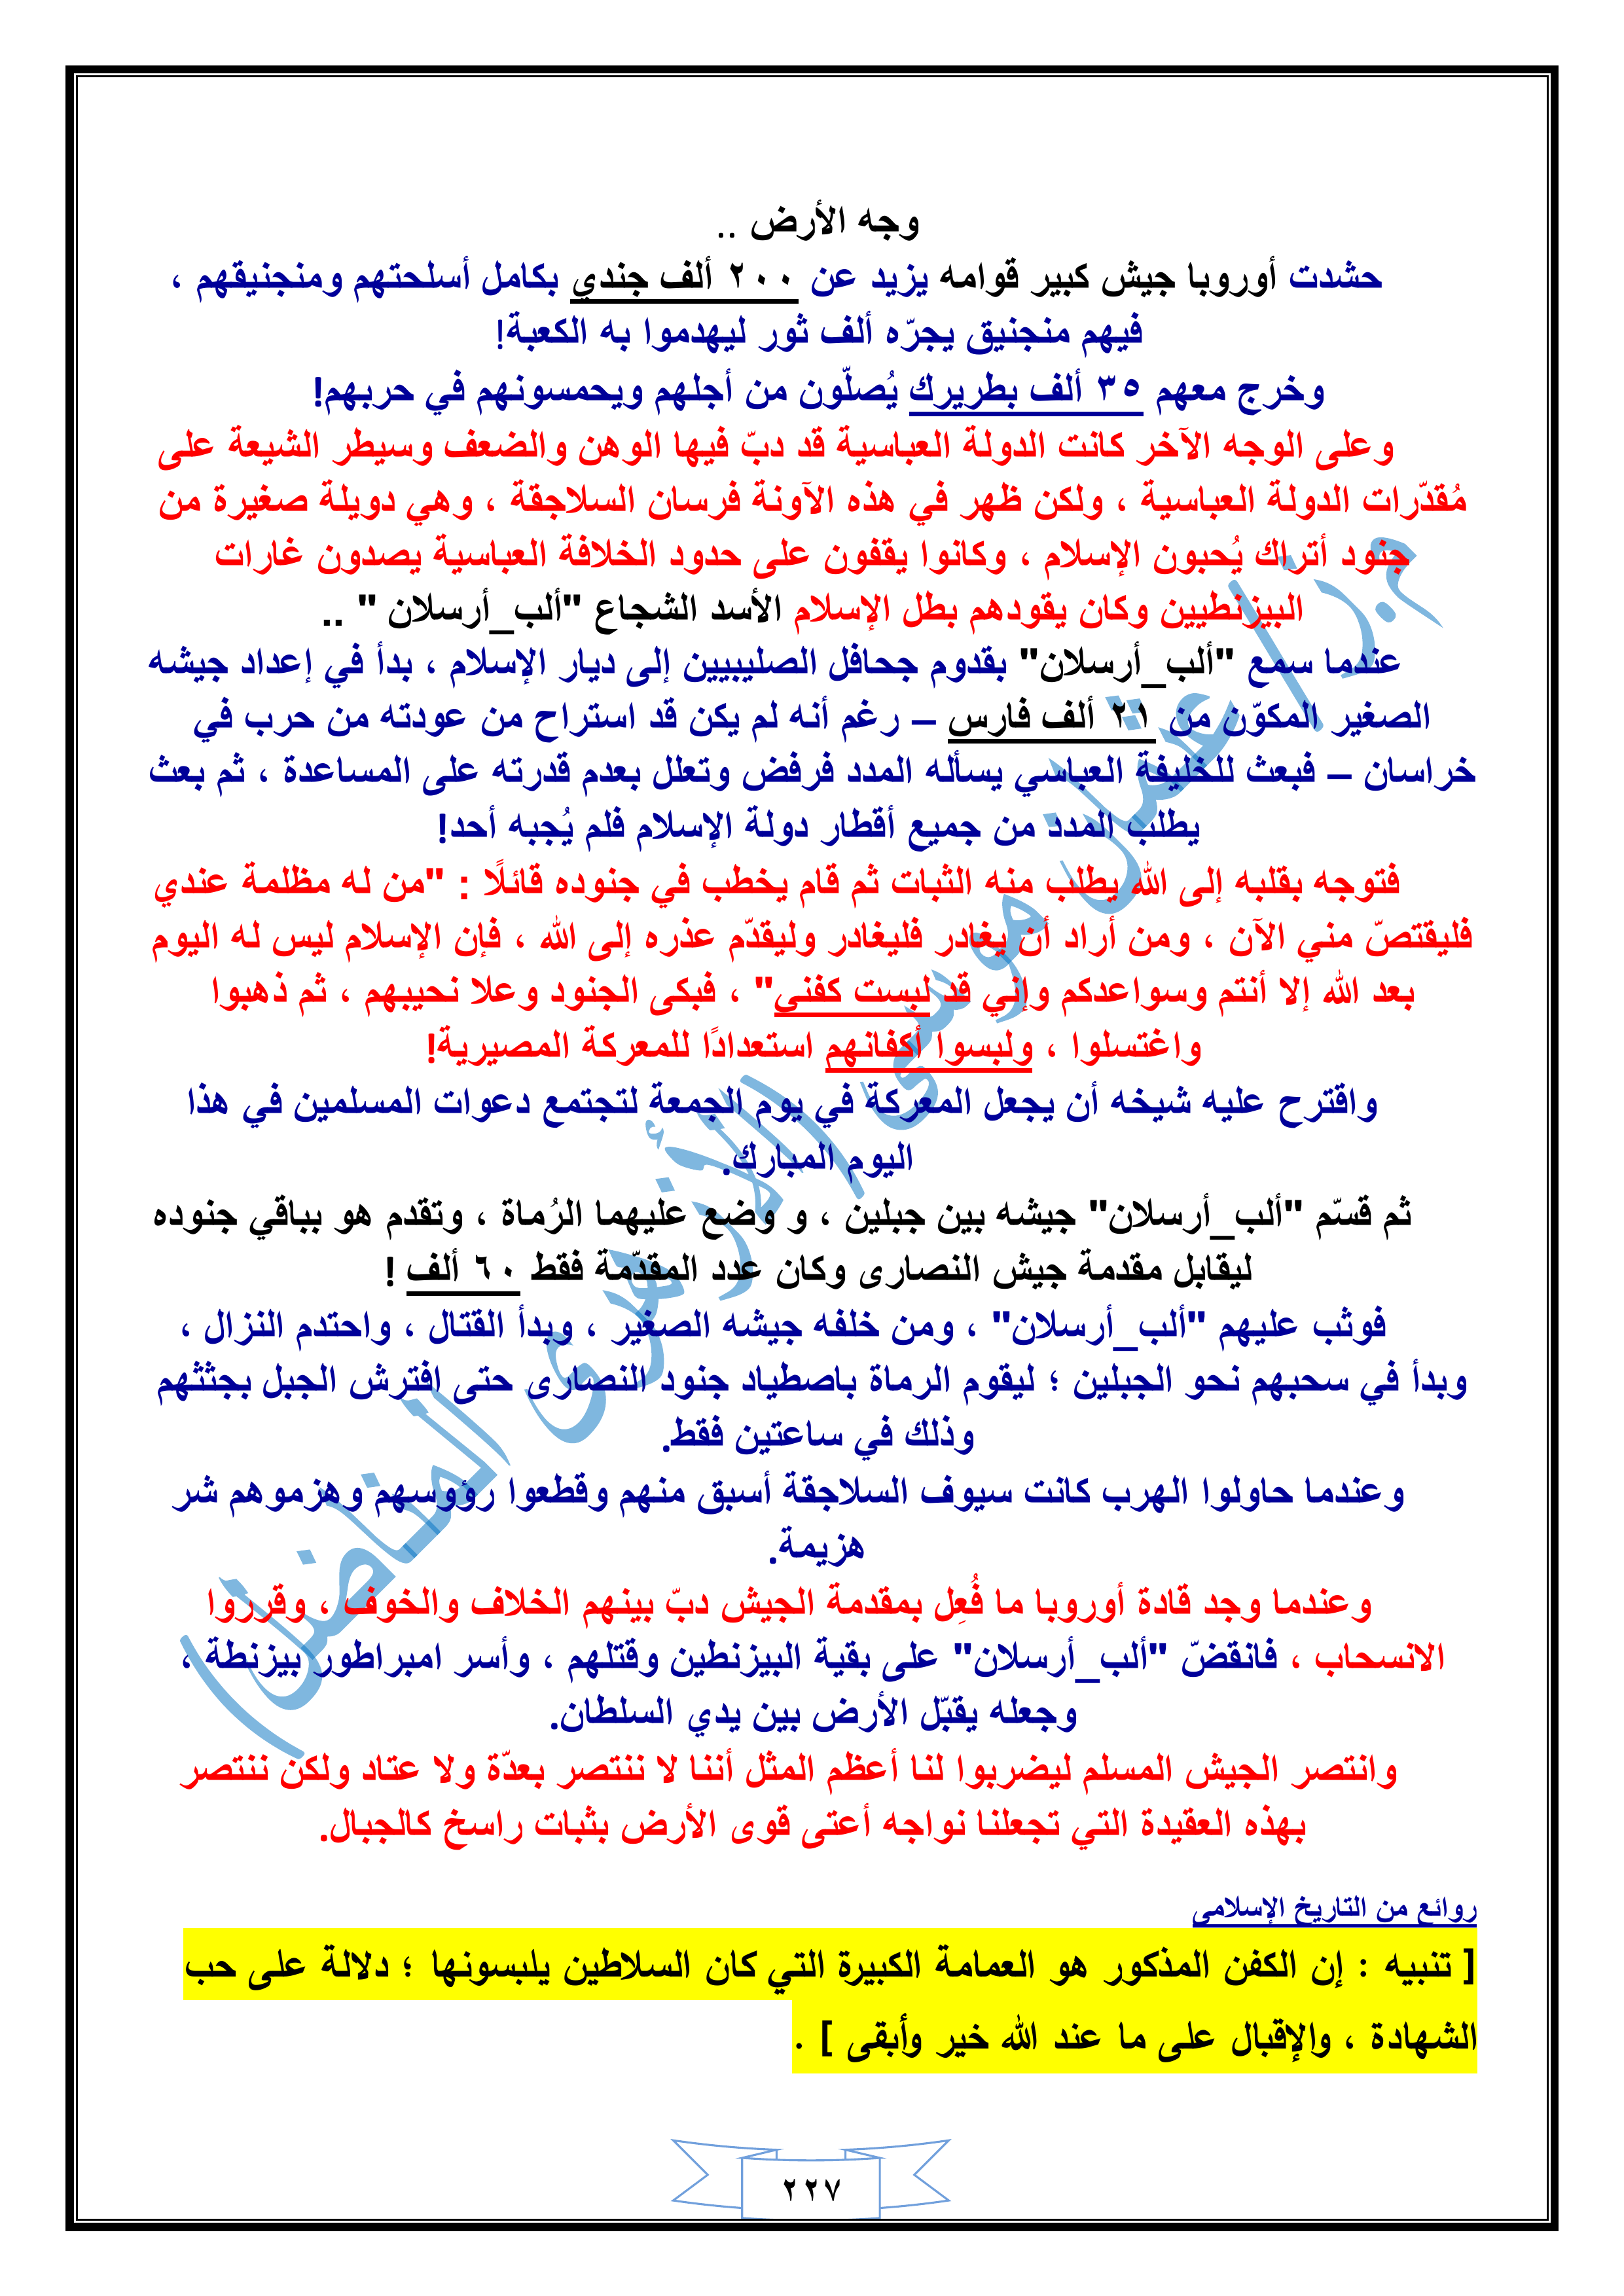 وجه الأرض ..
حشدت أوروبا جيش كبير قوامه يزيد عن ٢٠٠ ألف جندي بكامل أسلحتهم ومنجنيقهم ،
فيهم منجنيق يجرّه ألف ثور ليهدموا به الكعبة!
وخرج معهم ٣٥ ألف بطريرك يُصلّون من أجلهم ويحمسونهم في حربهم!
وعلى الوجه الآخر كانت الدولة العباسية قد دبّ فيها الوهن والضعف وسيطر الشيعة على
مُقدّرات الدولة العباسية ، ولكن ظهر في هذه الآونة فرسان السلاجقة ، وهي دويلة صغيرة من
جنود أتراك يُحبون الإسلام ، وكانوا يقفون على حدود الخلافة العباسية يصدون غارات
البيزنطيين وكان يقودهم بطل الإسلام الأسد الشجاع "ألب_أرسلان " ..
عندما سمع "ألب_أرسلان" بقدوم جحافل الصليبيين إلى ديار الإسلام ، بدأ في إعداد جيشه
الصغير المكوّن من ٢١ ألف فارس – رغم أنه لم يكن قد استراح من عودته من حرب في
خراسان – فبعث للخليفة العباسي يسأله المدد فرفض وتعلل بعدم قدرته على المساعدة ، ثم بعث
يطلب المدد من جميع أقطار دولة الإسلام فلم يُجبه أحد!
فتوجه بقلبه إلى الله يطلب منه الثبات ثم قام يخطب في جنوده قائلًا : "من له مظلمة عندي
فليقتصّ مني الآن ، ومن أراد أن يغادر فليغادر وليقدّم عذره إلى الله ، فإن الإسلام ليس له اليوم
بعد الله إلا أنتم وسواعدكم وإني قد لبست كفني" ، فبكى الجنود وعلا نحيبهم ، ثم ذهبوا
واغتسلوا ، ولبسوا أكفانهم استعدادًا للمعركة المصيرية!
واقترح عليه شيخه أن يجعل المعركة في يوم الجمعة لتجتمع دعوات المسلمين في هذا
اليوم المبارك.
ثم قسّم "ألب_أرسلان" جيشه بين جبلين ، و وضع عليهما الرُماة ، وتقدم هو بباقي جنوده
ليقابل مقدمة جيش النصارى وكان عدد المقدّمة فقط ٦٠ ألف !
فوثب عليهم "ألب_أرسلان" ، ومن خلفه جيشه الصغير ، وبدأ القتال ، واحتدم النزال ،
وبدأ في سحبهم نحو الجبلين ؛ ليقوم الرماة باصطياد جنود النصارى حتى افترش الجبل بجثثهم
وذلك في ساعتين فقط.
وعندما حاولوا الهرب كانت سيوف السلاجقة أسبق منهم وقطعوا رؤوسهم وهزموهم شر
هزيمة.
وعندما وجد قادة أوروبا ما فُعِل بمقدمة الجيش دبّ بينهم الخلاف والخوف ، وقرروا
الانسحاب ، فانقضّ "ألب_أرسلان" على بقية البيزنطين وقتلهم ، وأسر امبراطور بيزنطة ،
وجعله يقبّل الأرض بين يدي السلطان.
وانتصر الجيش المسلم ليضربوا لنا أعظم المثل أننا لا ننتصر بعدّة ولا عتاد ولكن ننتصر
بهذه العقيدة التي تجعلنا نواجه أعتى قوى الأرض بثبات راسخ كالجبال.
روائع من التاريخ الإسلامي
[ تنبيه : إن الكفن المذكور هو العمامة الكبيرة التي كان السلاطين يلبسونها ؛ دلالة على حب
الشهادة ، والإقبال على ما عند الله خير وأبقى ] .
٢٢٧
م.د/ عثمان موسى (الأزهرى المناضل)